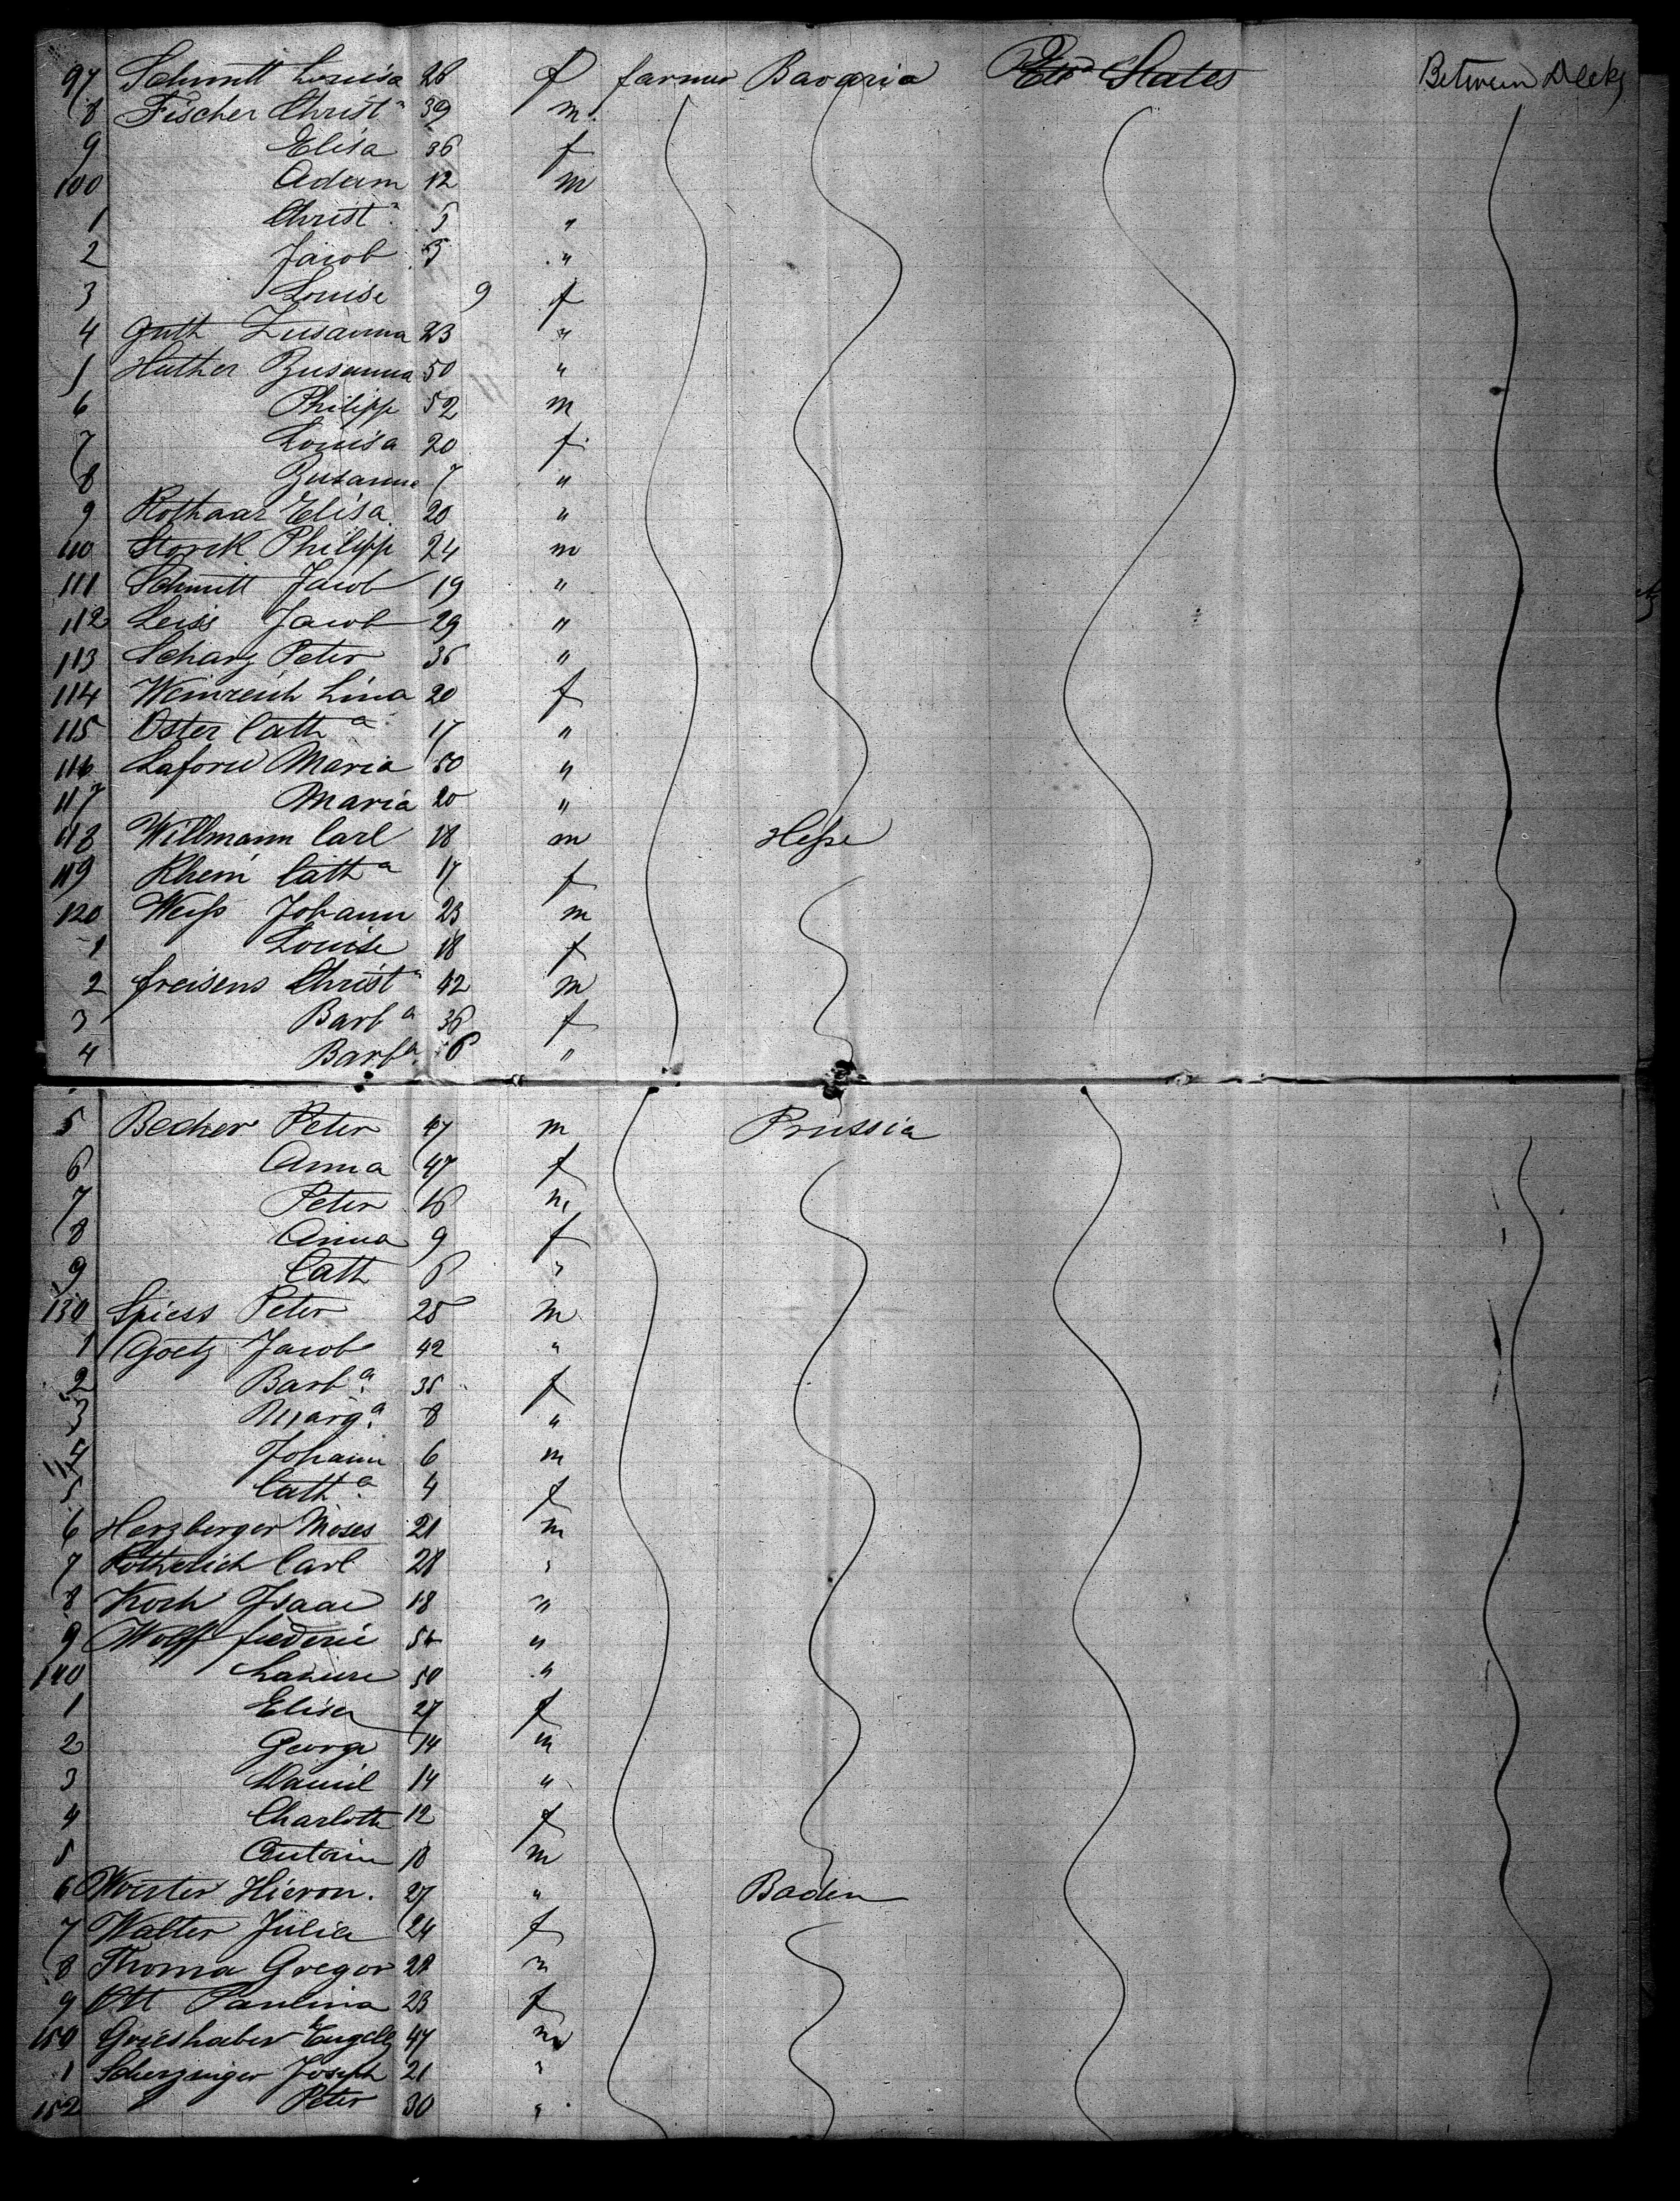 97 Schmitt Louisa 28 f farmer Bavaria States Between Decks
8 Fischer Christ n 39 m
9 Elisa 36 f
100 Adam 12 m
1 Christ n 5 "
2 Jacob 3 "
3 Louise 9 f
4 Guth Zusanna 23 "
5 Huther Zusanna 50 "
6 Philipp 52 m
7 Louisa 20 f
8 Zusanna 7 "
9 Rothaar Elisa 20 "
110 Storck Philipp 24 m
111 Schmitt Jacob 19 "
112 Leiss Jacob 29 "
113 Scharz Peter 36 "
114 Weinreich Lina 20 f
115 Oster Cath a 17 "
116 Maria 50 "
117 Maria 20 "
118 Willmann Carl 18 m Hesse
119 Rhein Cath a 17 f
120 Weiss Johann 23 m
1 Louise 18 f
2 freisens Christ n 42 m
3 Barb a 36 f
4 Barb a 6 "
5 Becker Peter 47 m Prussia
6 Anna 47 f
7 Peter 16 m
8 Anna 9 f
9 Cath 6 "
130 Spiess Peter 25 m
1 Goetz Jacob 42 "
2 Barb a 35 f
3 Marg a 8 "
4 Johann 6 m
5 Cath a 4 f
6 Herzberger Moses 21 m
7 Carl 28 "
8 Koch Isaac 18 "
9 Wolff frederic "
140 50 "
1 Elisa 27 f
2 George 14 m
3 Daniel 14 "
4 Charlotte 12 f
5 10 m
6 Hieron. 27 " Baden
7 Walter Julia 24 f
8 Thoma Gregor 28 m
9 Ott Paulina 23 f
150 Grieshaber 47 m
1 Scherzinger Joseph 21 "
152 Peter 30 "